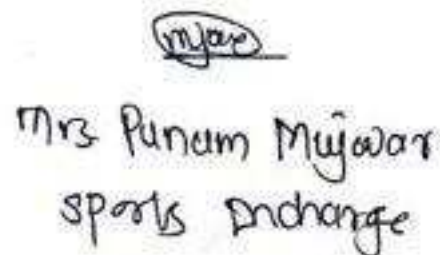 Mrs Punam Mujawar
sports Incharge